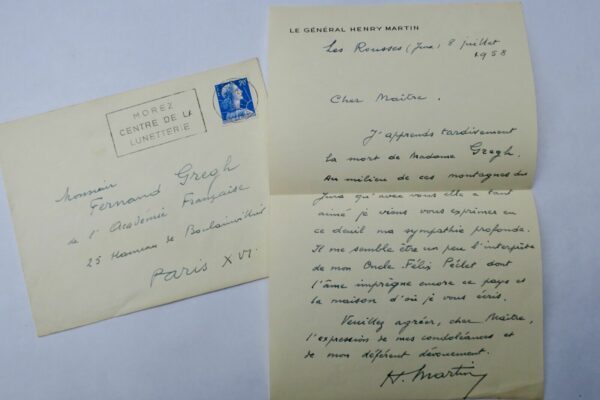 MOREZ
CENTRE DE LA
LUNETTERIE
Monsieur
Fernand Gregh
de l'Académie Française
25 Hameau de Boulainvilliers
Paris XVI
LE GÉNÉRAL HENRY MARTIN
Les Rousses (Jura) 8 juillet
1958
Cher Maître.
J'apprends tardivement
la mort de Madame Gregh.
Au milieu de ces montagnes du
Jura qu'avec vous elle a tant
aimé je viens vous exprimer en
ce deuil ma sympathie profonde.
Il me semble être un peu l'interprète
de mon Oncle Félix Péclet dont
l'âme imprègne encore ce pays et
la maison d'où je vous écris.
Veuillez agréer, cher Maître,
l'expression de mes condoléances et
de mon déférent dévouement.
H. Martin